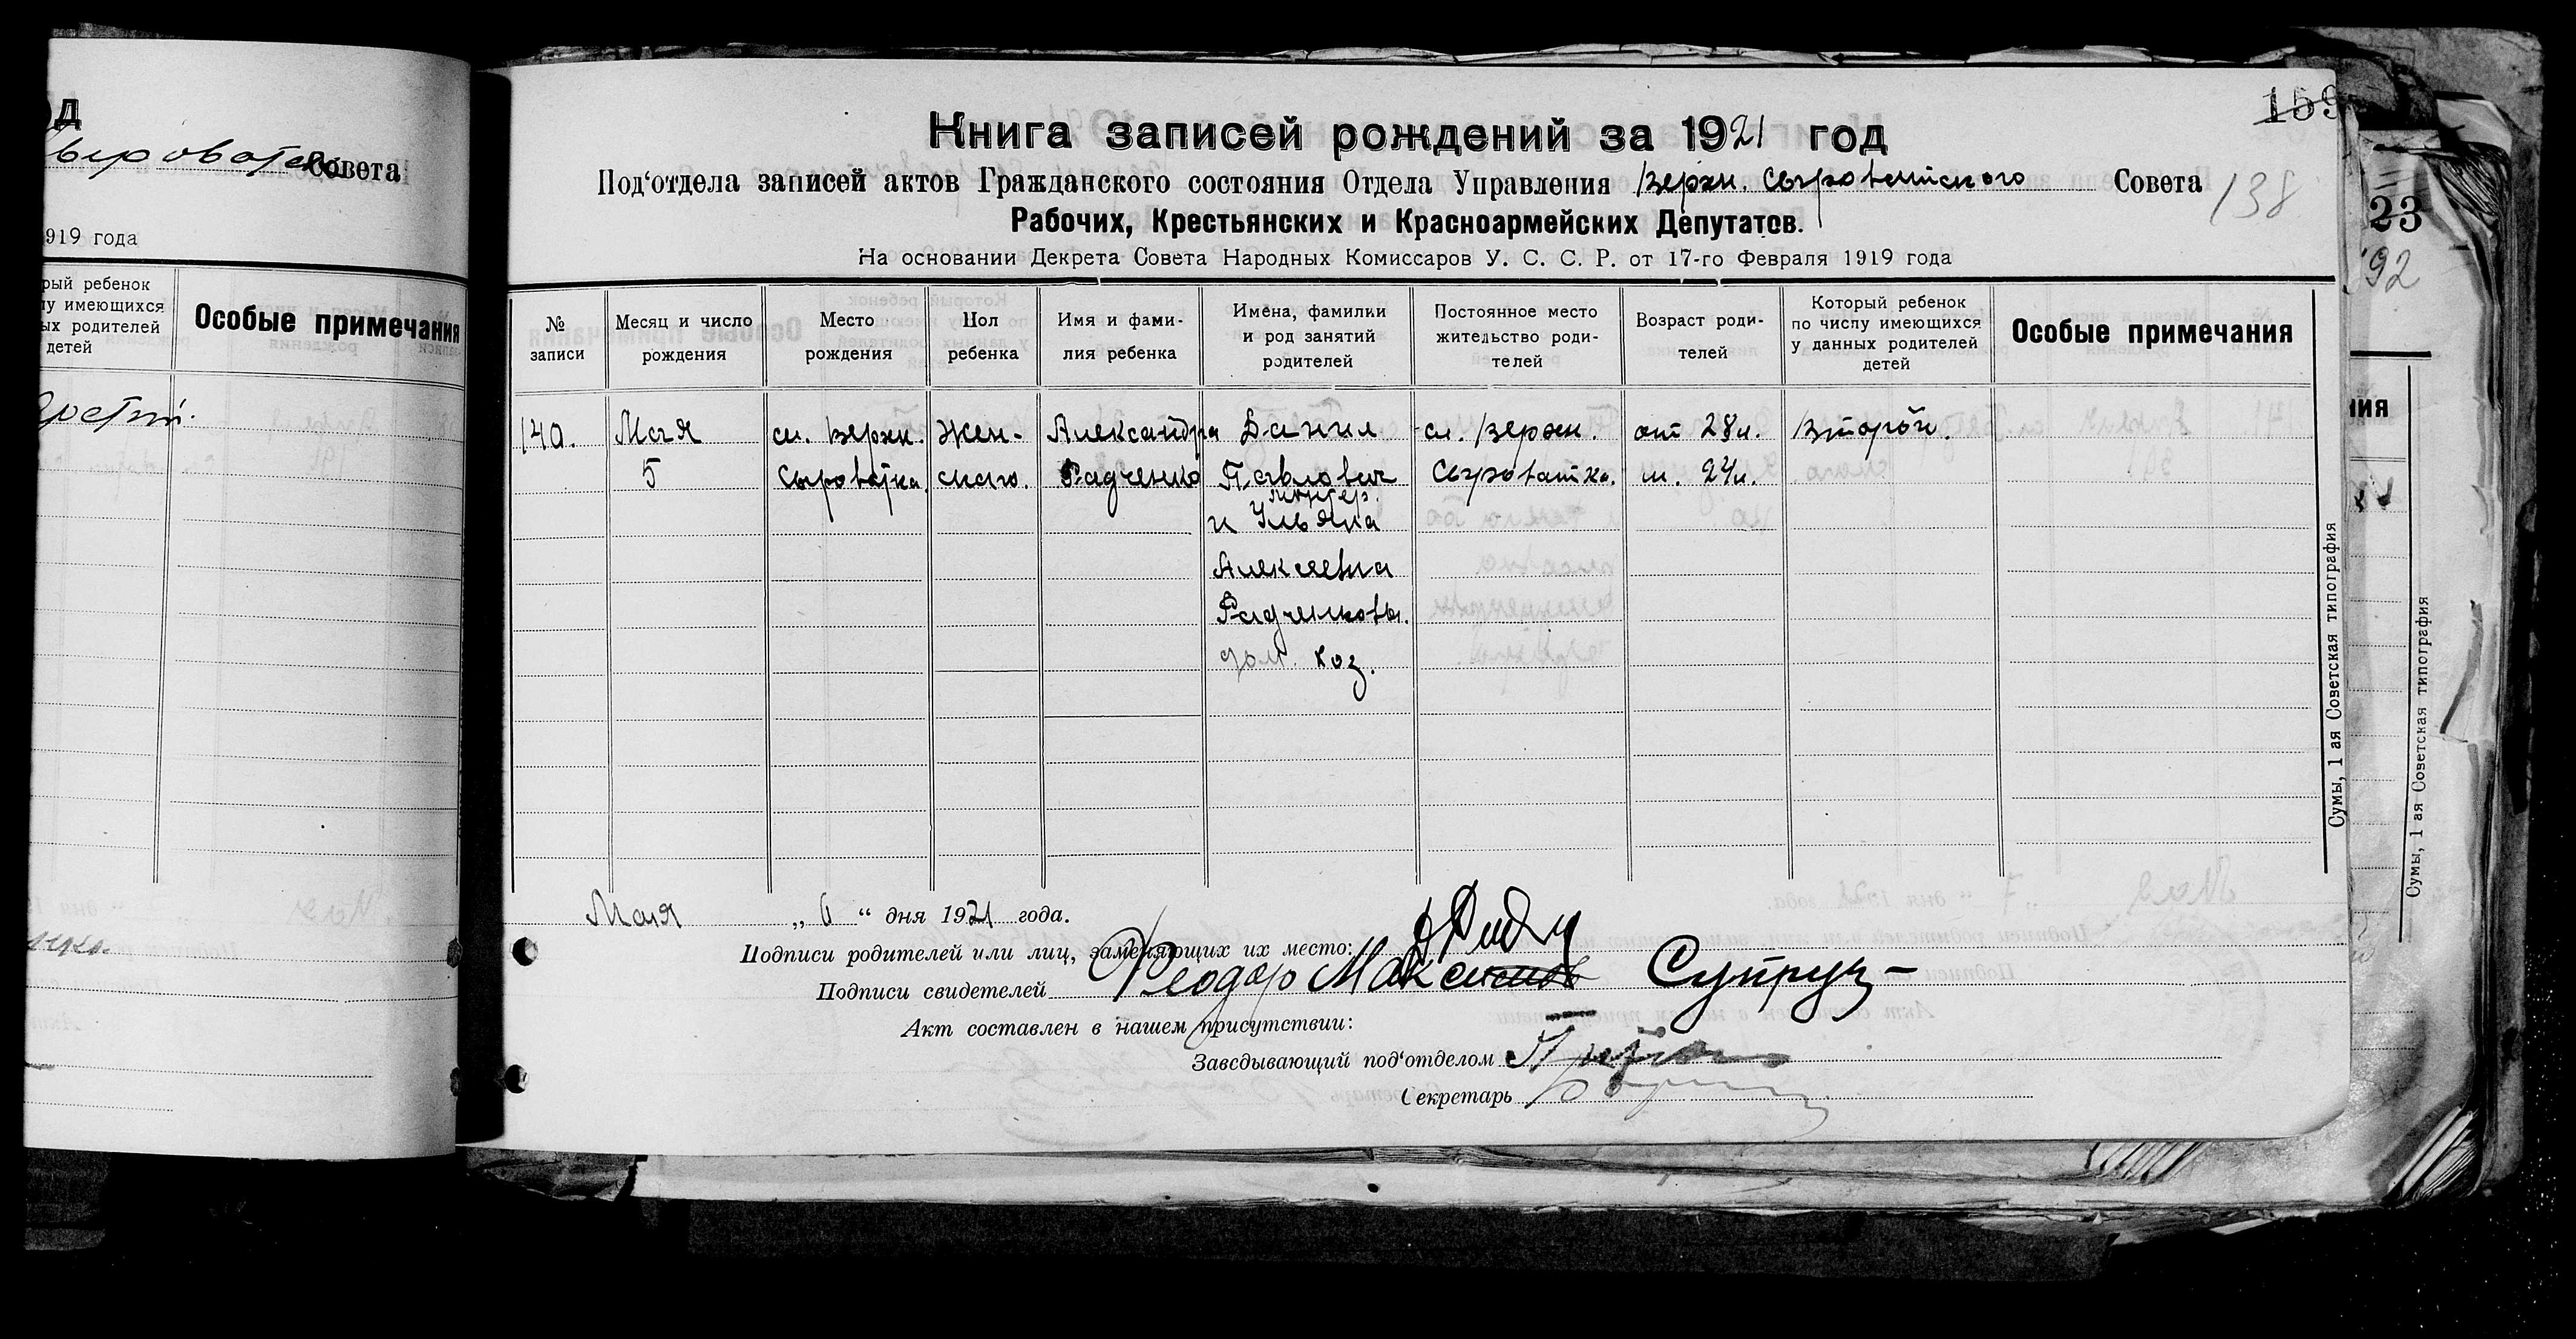 од
Сыроватск Совета
1919 года
рый ребенок
лу имеющихся
ых родителей
детей
Особые примечания
159
Книга записей рождений за 1921 год
Под'отдела записей актов Гражданского состояния Отдела Управления Верхн. Сыроватского Совета
138
Рабочих, Крестьянских и Красноармейских Депутатов.
На основании Декрета Совета Народных Комиссаров У. С. С. Р. от 17-го Февраля 1919 года
23
92
№ записи
Месяц и число рождения
Место рождения
Пол ребенка
Имя и фамилия ребенка
Имена, фамилии и род занятий родителей
Постоянное место жительство родителей
Возраст родителей
Который ребенок по числу имеющихся у данных родителей детей
Особые примечания
140. Мая сл. Верхн. Жен- Александра Данил сл. Верхн. от 28 л. Второй.
5 Сыроватка. ского. Радченко Павлович Сыроватка. м. 24 л.
и Ульяна
Алексеевна
Радченковы.
дом. хоз.
Мая „ 6 “ дня 1921 года.
Подписи родителей или лиц, заменяющих их место:
Подписи свидетелей Феодор Максимов Супрун
Акт составлен в нашем присутствии:
Заведывающий под'отделом
Секретарь
Сумы, 1 ая Советская типография
Сумы, 1 ая Советская типография